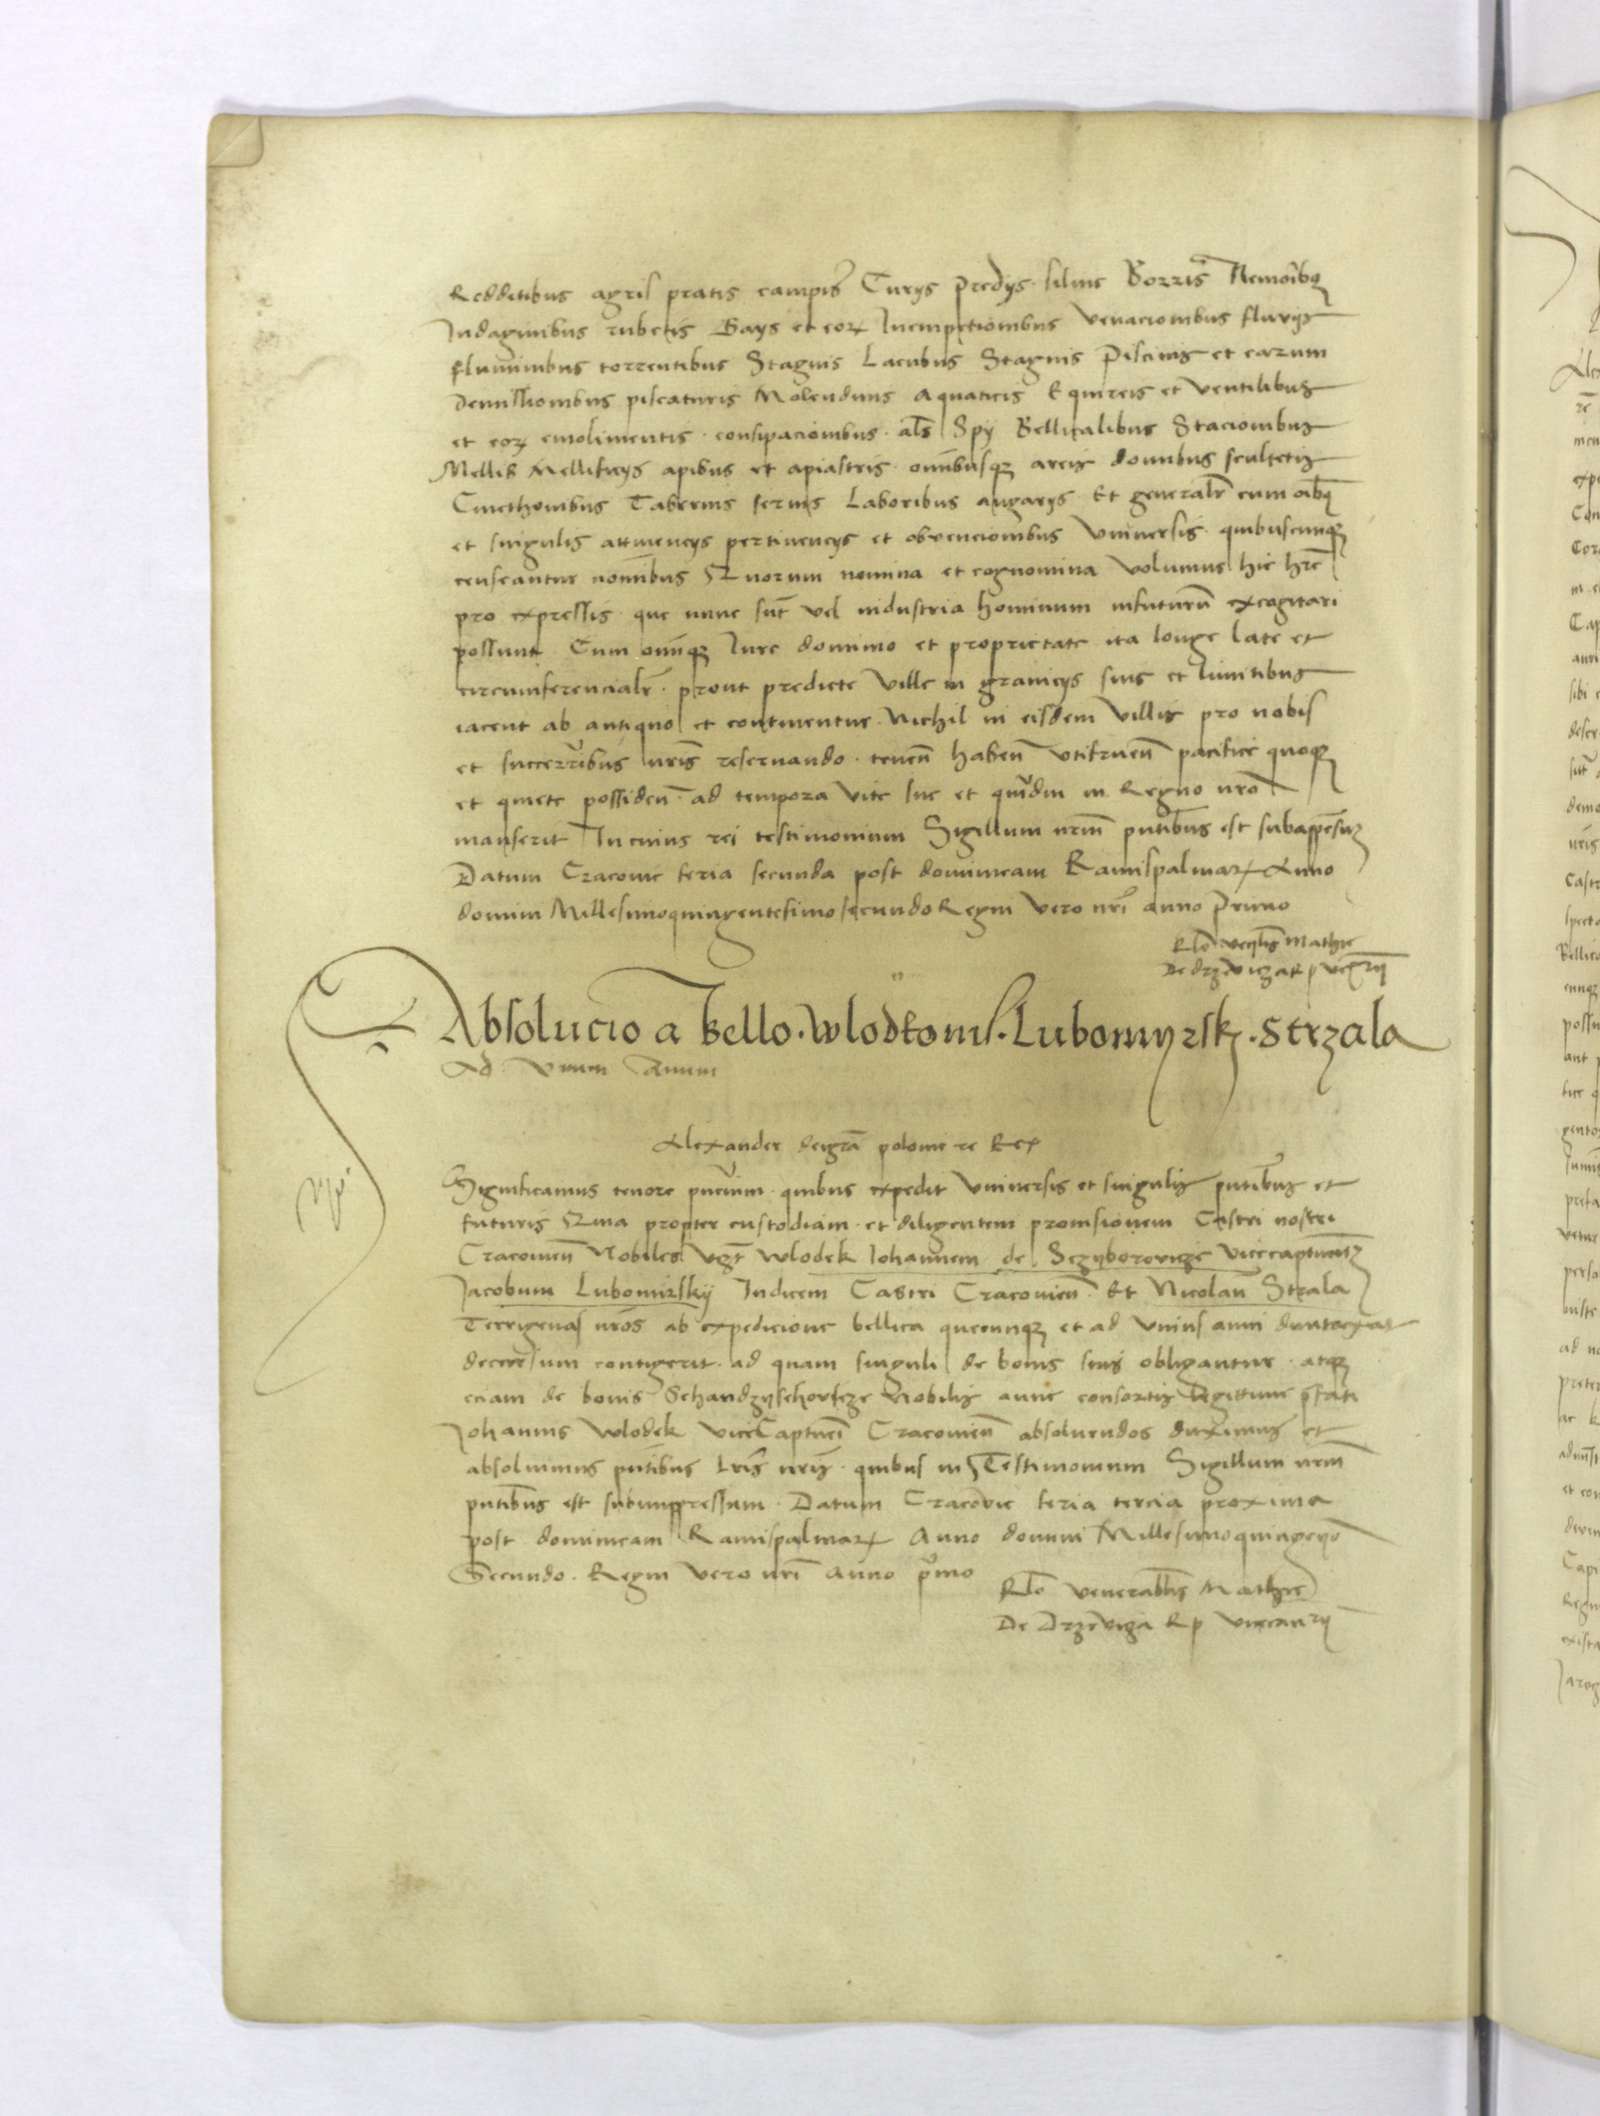 Redditibus agris pratis campis Curys Predys silvis Borris Nemoribq
Indaginibus rubetis Gays et eorꝝ Inemptiombus venacionibus fluvys
fluminibus torrentibus Stagnis Lacubus Stagnis Piscinis et earum
Demissionibus piscaturis Molendinis Aquaticis Equireis et ventilibus
et eorꝝ emolimentis consipacionibus als Spy Bellicalibus Stacionibus
Mellis Mellificys apibus et apiastris omnibusqꝫ areis domibus scultetis
Cmethonibus Tabernis servis Laboribus angarys Et generalr cum oibq
et singulis attinencys pertinencys et obvencionibus Universis quibuscunqꝫ
censeantur nominibus Quorum nomina et cognomina volumus hic hre
pro expressis que nunc sut vel industria hominum infuturu excogitari
possunt Cum omniqꝫ Iure dominio et proprietate ita longe late et
circumferencialr prout predicte ville in granicys suis et limitibus
iacent ab antiquo et continentur Nichil in eisdem villis pro nobis
et succrribus nris reservando tenen haben utifruen pacifice quoqꝫ
et quiete possiden ad tempora vite sue et qudiu in Regno nro
manserit In cuius rei testimonium Sigillum nrm pntibus est subappesuꝫ
Datum Cracovie feria secunda post dominicam Ramispalmarꝝ Anno
domini Millesimoquingentesimosecundo Regni vero nri anno Primo
Rlo veqlis Mathie
De drzevicza R p vic
Absolucio a bello. wlodkonis. Lubomyrsk. Strzala
Ad Unum Annum
Alexander deigra polonie re Rex
Significamus tenore pncium quibus expedit Universis et singulis pntibus et
futuris Quia propter custodiam et diligentem provisionem Castri nostri
Cracovien Nobiles vzt wlodek Iohannem de Sczyborovicze vicecaptaneuꝫ
Jacobum Lubomirsky Iudicem Castri Cracovien Et Nicolau Strala
Terrigenas nros ab expedicione bellica quecunqꝫ et ad Unius anni duntaxat
decursum contigerit ad quam singuli de bonis suis obligantur atqꝫ
eciam de bonis Schandzyschovicze Nobilis anne consortis legittime pfati
Iohannis wlodek viceCaptnei Cracovien absolvendos duximus et
absolvimus pntibus lris nris quibus in Testimonium Sigillum nrm
pntibus est subimppressum Datum Cracovie feria tercia proxima
post dominicam Ramispalmarꝝ Anno domini Millesimoquingeo
Secundo Regni vero nri anno pmo
Rlo venerablis Mathie
De Drzeviza R p vicecanrij